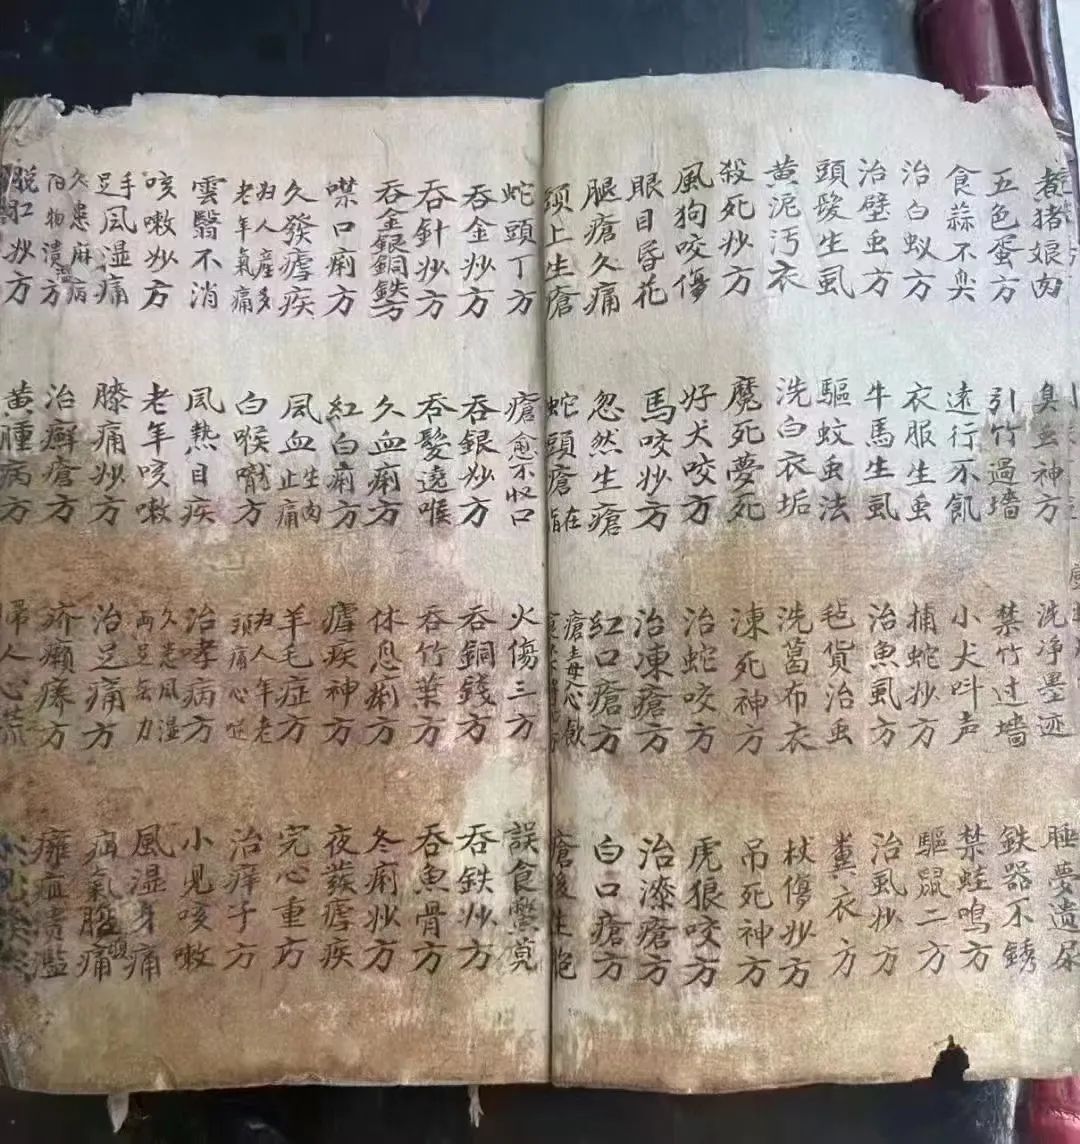 煮猪娘肉 臭虫神方 洗净墨迹 睡夢遺尿
五色蛋方 引竹過墙 禁竹过墙 鉄器不銹
食蒜不臭 遠行不飢 小犬呌声 禁蛙鳴方
治白蚁方 衣服生虫 捕蛇炒方 驅鼠二方
治壁虫方 牛馬生虱 治魚虱方 治虱炒方
頭髮生虱 驅蚊虫法 毡貨治虫 糞衣方
黄泥污衣 洗白衣垢 洗葛布衣 杖傷炒方
殺死炒方 魔死夢死 凍死神方 吊死神方
風狗咬傷 好犬咬方 治蛇咬方 虎狼咬方
眼目昏花 馬咬炒方 治凍瘡方 治潦瘡方
腿瘡久痛 忽然生瘡 紅口瘡方 白口瘡方
上生瘡 蛇頭瘡在指 瘡毒心飲 瘡後生
蛇頭丁方 瘡愈不收口 火傷三方 誤食
吞金炒方 吞銀炒方 吞銅錢方 吞鉄炒方
吞針炒方 吞髮遶喉 吞竹葉方 吞魚骨方
吞金銀銅鉄方 久血痢方 休息痢方 冬痢炒方
噤口痢方 紅白痢方 瘧疾神方 夜發瘧疾
久發瘧疾 風血止痛生肉 羊毛症方 完心重方
妇人産多老年氣痛 白喉方 妇人年老頭痛心 治痒子方
雲翳不消 風熱目疾 治哮病方 小児咳嗽
咳嗽炒方 老年咳嗽 久患風湿両足無力 風湿身痛
手足風湿痛 膝痛炒方 治足痛方 疝氣腹痛
久患麻病陽物潰方 治癬瘡方 疥癩瘆方 癰疽潰濫
脱肛炒方 黄腫病方 婦人心荒